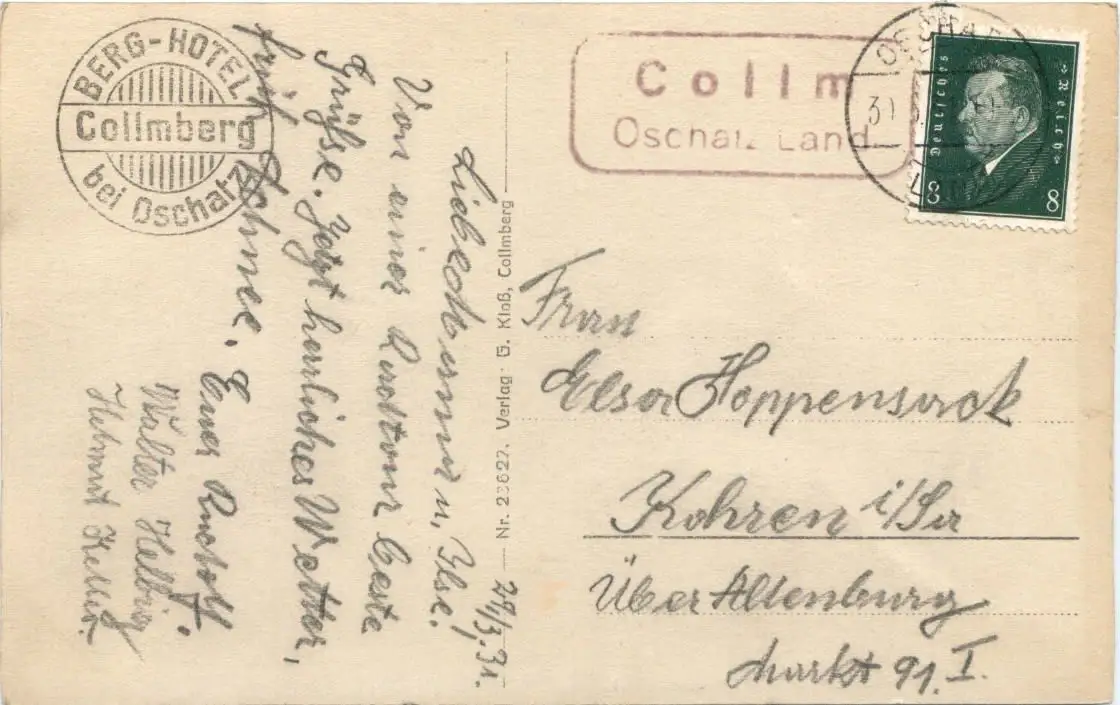 BERG-HOTEL
Collmberg
bei Oschatz
Collm
Oschatz Land
OSCHA
30
Deutsches
Reich
8
8
29/3.31.
Liebe Mama u. Ilse!
Von einer Radtour beste
Grüße. Jetzt herrliches Wetter,
früh Schnee. Euer Rudolf.
Walter Helbig
Helmut Keller.
Nr. 23627. Verlag: G. Kloß, Collmberg
Frau
Elsa Hoppensack
Kohren i/Sa
Über Altenburg
Markt 91. I.